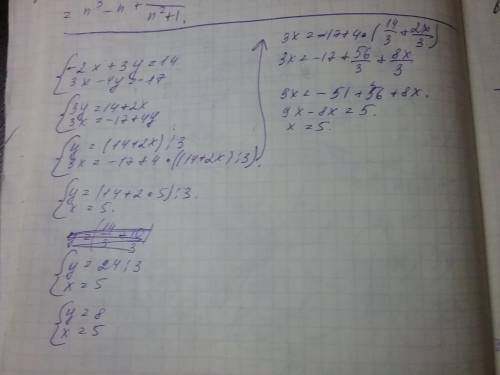 = n³ - n + / n²+1.
{ -2x + 3y = 14
3x - 4y = -17
{ 3y = 14 + 2x
3x = -17 + 4y
{ y = (14+2x) : 3
3x = -17 + 4 • ((14+2x) : 3)
{ y = (14 + 2 • 5) : 3.
x = 5.
{ y = 24 : 3
x = 5
{ y = 8
x = 5
3x = -17 + 4 • (14/3 + 2x/3)
3x = -17 + 56/3 + 8x/3
9x = -51 + 56 + 8x.
9x - 8x = 5.
x = 5.